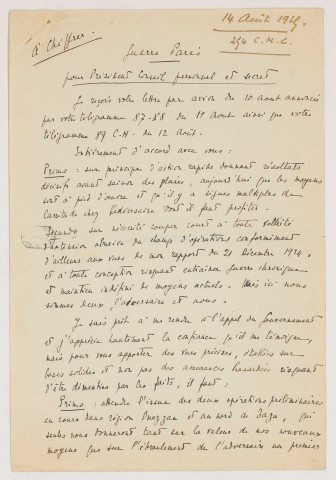 14 Août 1925
à Chiffrer.
254 C.M.C.
Guerre Paris
pour Président Conseil personnel et secret
Je reçois votre lettre par avion du 10 août annoncée
par votre télégramme 87-88 du 11 août ainsi que votre
télégramme 89 C.H. du 12 août.
Entièrement d'accord avec vous :
Primo : sur principe d'action rapide donnant résultats
décisifs avant saison des pluies, aujourd'hui que les moyens
sont à pied d'œuvre et qu'il y a signes multiples de
lassitude chez l'adversaire dont il faut profiter.
Secundo : sur nécessité couper court à toute velléité
d'extension abusive du champ d'opérations conformément
d'ailleurs aux vues de mon rapport du 21 décembre 1924,
et à toute conception risquant entraîner guerre chronique
et maintien indéfini de moyens actuels. Mais ici nous
sommes deux, l'adversaire et nous.
Je suis prêt à me rendre à l'appel du Gouvernement
et j'apprécie hautement la confiance qu'il me témoigne,
mais pour vous apporter des vues précises, établies sur
bases solides et non pas des assurances hasardées risquant
d'être démenties par les faits, il faut :
Primo : attendre l'issue des deux opérations préliminaires
en cours dans région Ouezzan et au nord de Taza, qui
seules nous donneront tant sur la valeur de nos nouveaux
moyens que sur l'ébranlement de l'adversaire un premier